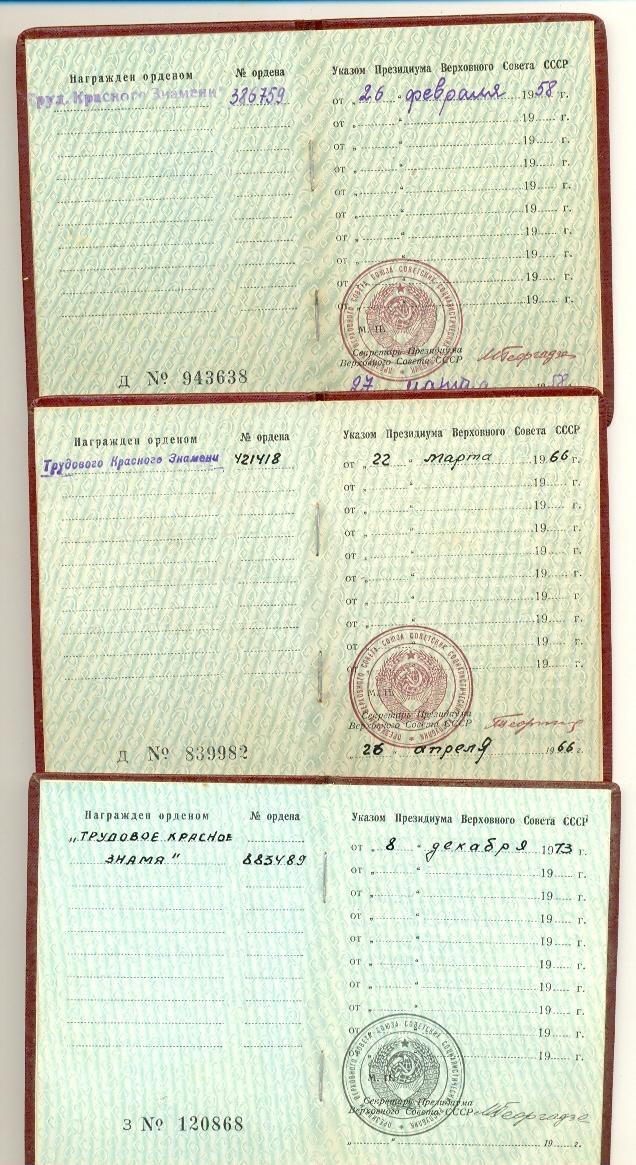 Награжден орденом № ордена Указом Президиума Верховного Совета СССР
Труд. Красного Знамени" 386759 от „ 26 " февраля 1958 г.
от „ " 19 г.
от „ " 19 г.
от „ " 19 г.
от „ " 19 г.
от „ " 19 г.
от „ " 19 г.
от „ " 19 г.
от „ " 19 г.
от 19 г.
ПРЕЗИДИУМ ВЕРХОВНОГО СОВЕТА СОЮЗА СОВЕТСКИХ СОЦИАЛИСТИЧЕСКИХ
М. П.
Секретарь Президиума
Верховного Совета СССР МГеоргадзе
Д № 943638 27 марта 1958
Награжден орденом № ордена Указом Президиума Верховного Совета СССР
Трудового Красного Знамени 421418 от „ 22 " марта 1966 г.
от „ " 19 г.
от „ " 19 г.
от „ " 19 г.
от „ " 19 г.
от „ " 19 г.
от „ " 19 г.
от „ " 19 г.
от „ " 19 г.
от 19 г.
ПРЕЗИДИУМ ВЕРХОВНОГО СОВЕТА СОЮЗА СОВЕТСКИХ СОЦИАЛИСТИЧЕСКИХ
М. П.
Секретарь Президиума
Верховного Совета СССР
Д № 839982 „ 26 " апреля 1966 г.
Награжден орденом № ордена Указом Президиума Верховного Совета СССР
„ТРУДОВОЕ КРАСНОЕ от „ 8 " декабря 1973 г.
ЗНАМЯ" 883489 от „ " 19 г.
от „ " 19 г.
от „ " 19 г.
от „ " 19 г.
от „ " 19 г.
от „ " 19 г.
от „ " 19 г.
от „ " 19 г.
от 19 г.
ПРЕЗИДИУМ ВЕРХОВНОГО СОВЕТА СОЮЗА СОВЕТСКИХ СОЦИАЛИСТИЧЕСКИХ
М. П.
Секретарь Президиума
Верховного Совета СССР МГеоргадзе
З № 120868
„ " 19 г.